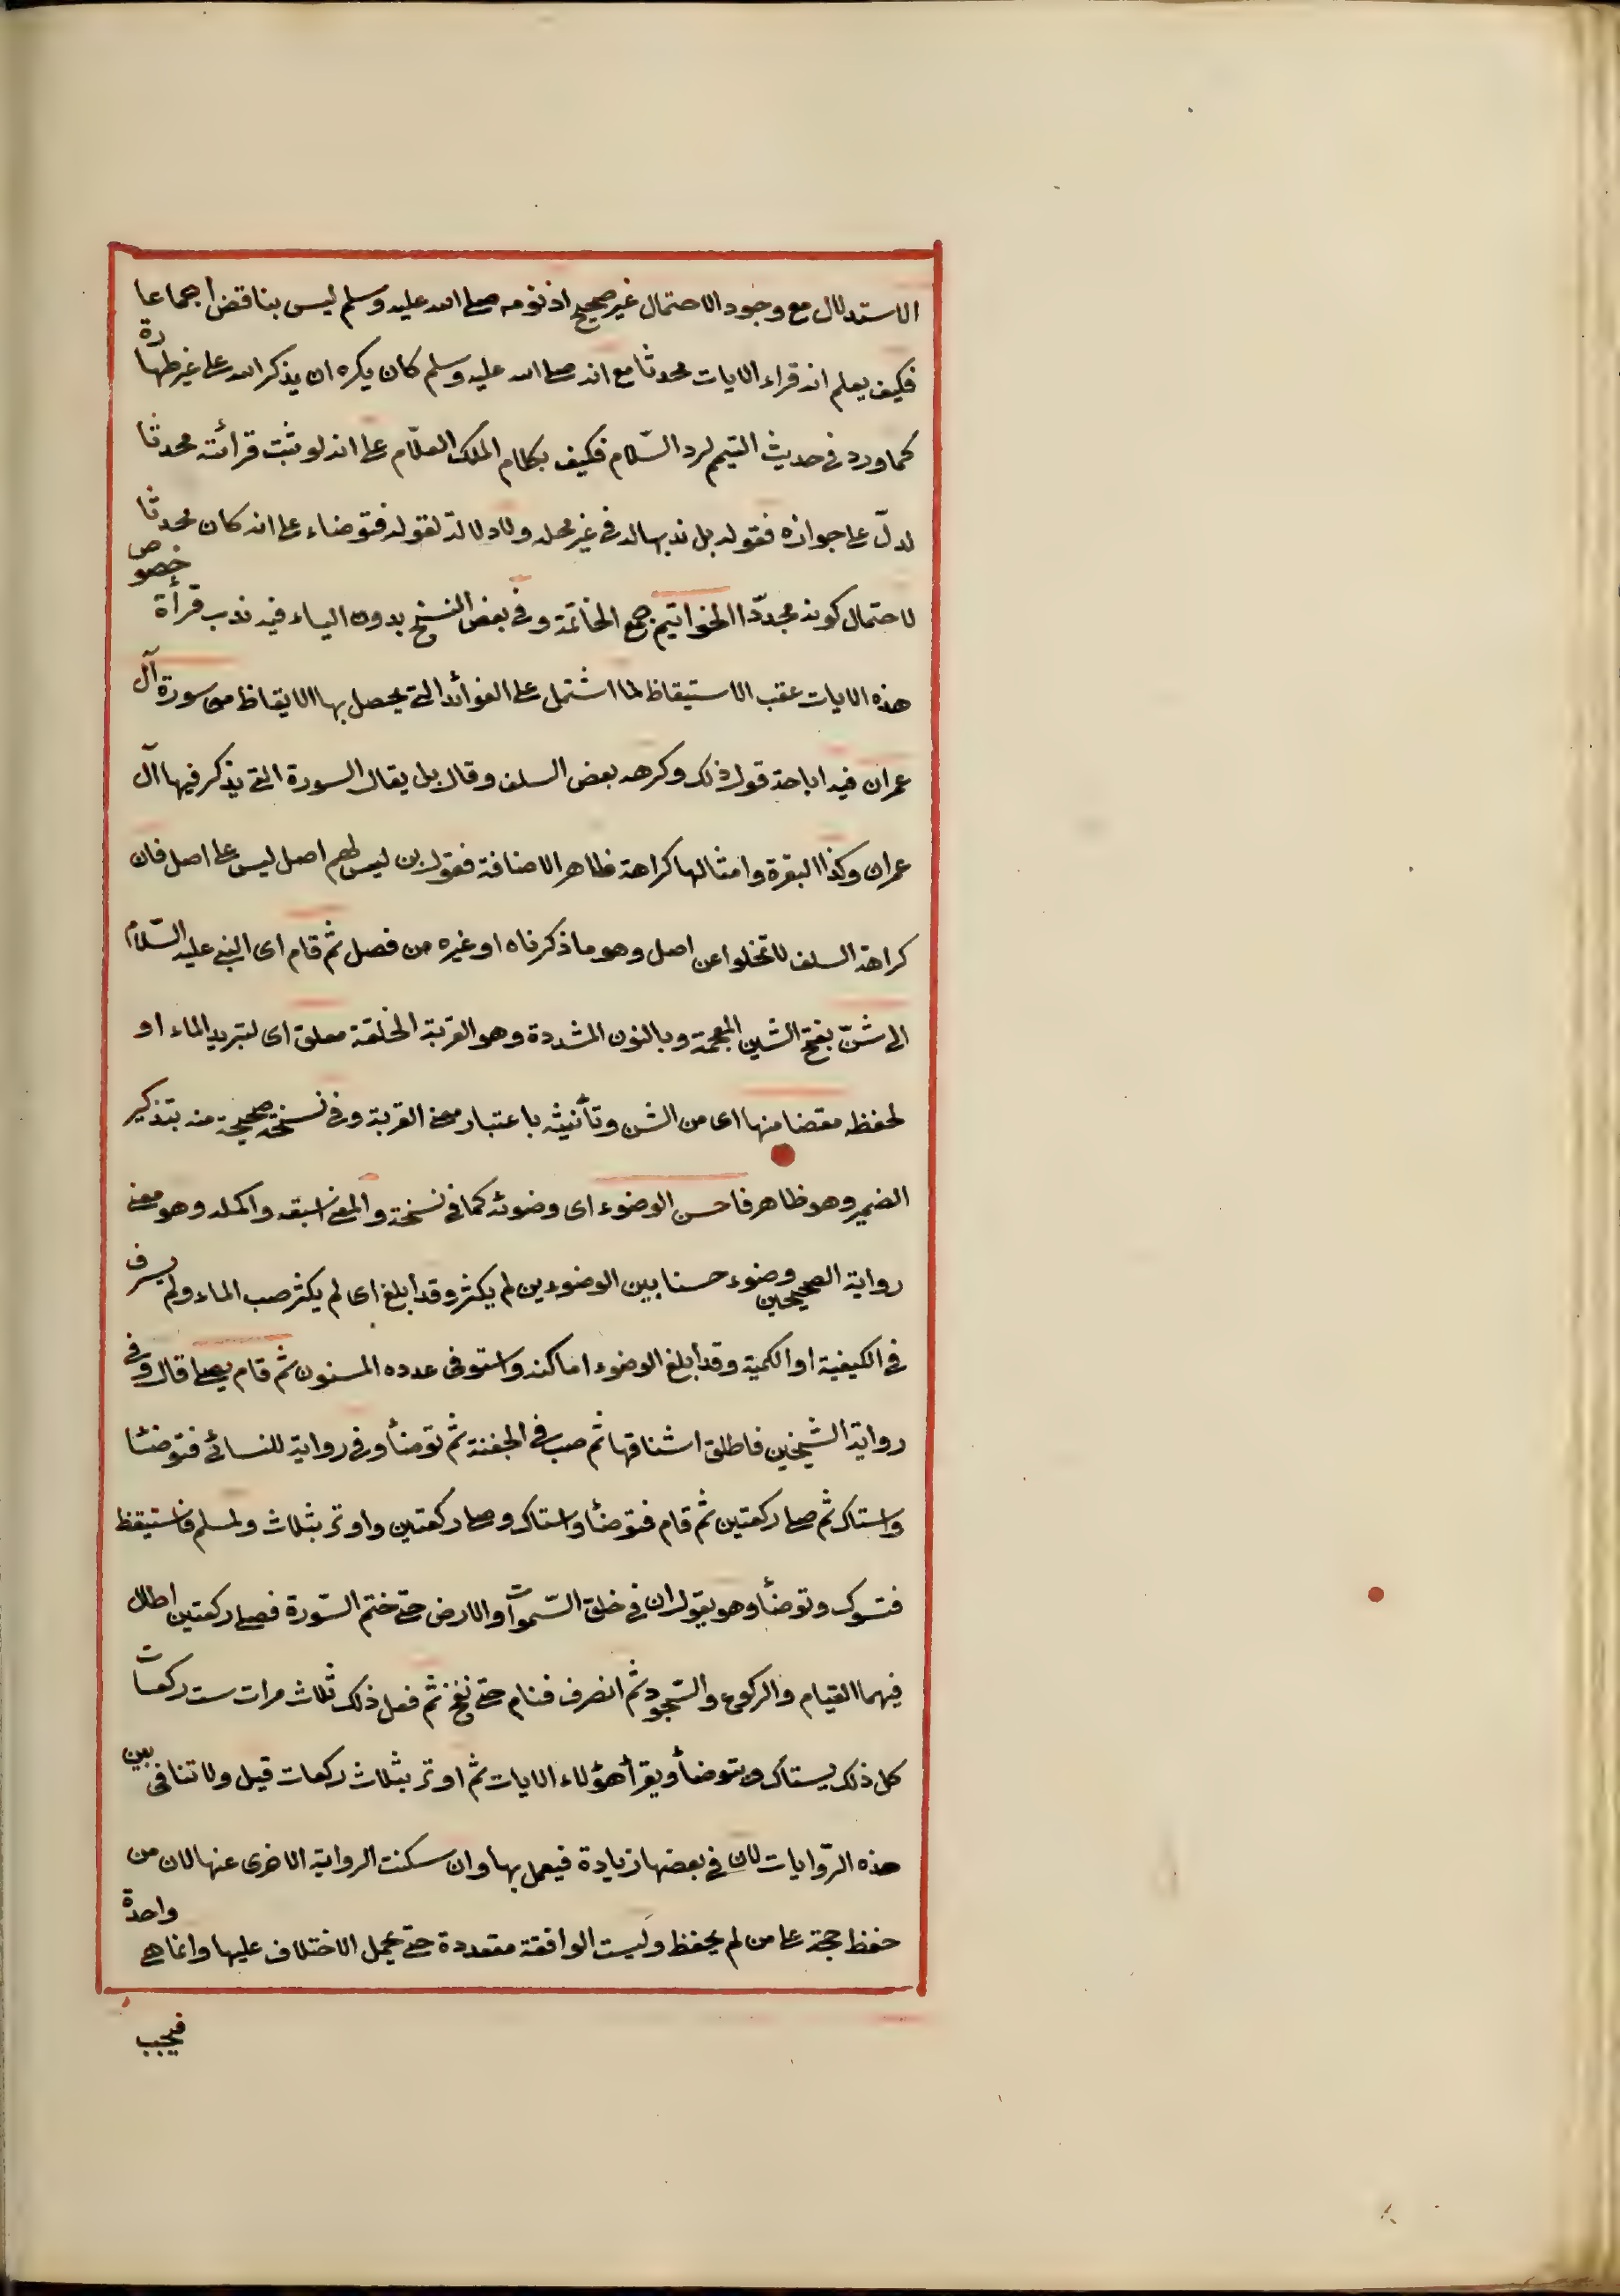 الاستدلال مع وجود الاحتمال غير صحيح اذ نومه صلى الله عليه وسلم ليس بناقض اجماعا
فكيف يعلم انه قراء الايات محدثا مع انه صلى الله عليه وسلم كان يكره ان يذكر الله على غير طهارة
كما ورد فى حديث التيمم لرد السّلام فكيف بكلام الملك العلّام على انه لو ثبت قرائته محدثا
لدلّ على جوازه فقوله بل ندبها له فى غير محله ولا دلالة لقوله فتوضاء على انه كان محدثا
لاحتمال كونه مجددّا الخواتيم جمع الخاتمة وفى بعض النسخ بدون الياء فيه ندب قرأة خصوص
هذه الايات عقب الاستيقاظ لما اشتمل على الفوائد التى يحصل بها الايقاظ من سورة آل
عمران فيه اباحة قول ذلك وكرهه بعض السلف وقال بل يقال السورة التى يذكر فيها آل
عمران وكذا البقرة وامثالها كراهة ظاهر الاضافة فقول بن ليس لهم اصل ليس على اصل فان
كراهة السلف لا تخلوا عن اصل وهو ما ذكرناه او غيره من فصل ثم قام اى النبى عليه السّلام
الى شنّ بفتح الشين المعجمة وبالنون المشددة وهو القربة الخلقة معلق اى لتبريد الماء او
لحفظه متوضا منها اى من الشن وتأنيثه باعتبار معنى القربة وفى نسخة صحيحة منه بتذكير
الضمير وهو ظاهر فاحسن الوضوء اى وضوئه كما فى نسخة والمعنى اسبغه واكمله وهو معنى
رواية الصحيحين وضوء حسنا بين الوضوءين لم يكثر وقد ابلغ اى لم يكثر صب الماء ولم يسرف
فى الكيفية او الكمية وقد ابلغ الوضوء اماكنه واستوفى عدده المسنون ثم قام يصلى قال وفى
رواية الشيخين فاطلق اشناقها ثم صب فى الجفنة ثم توضأ وفى رواية للنسائى فتوضئا
واستاك ثم صلى ركعتين ثم قام فتوضئا واستاك وصلى ركعتين واوتر بثلاث ولمسلم فاستيقظ
فتسوك وتوضأ وهو يقول ان فى خلق السّموات والارض حتى ختم السّورة فصلى ركعتين اطال
فيهما القيام والركوع والسّجود ثم انصرف فنام حتى نفخ ثم فعل ذلك ثلاث مرات ست ركعات
كل ذلك يستاك ويتوضأ ويقرأ هؤلاء الايات ثم اوتر بثلاث ركعات قيل ولا تنافى بين
هذه الرّوايات لان فى بعضها زيادة فيعمل بها وان سكتت الرواية الاخرى عنها لان من
حفظ حجة على من لم يحفظ وليست الواقعة متعددة حتى يحمل الاختلاف عليها وانما هى واحدة
فيجب